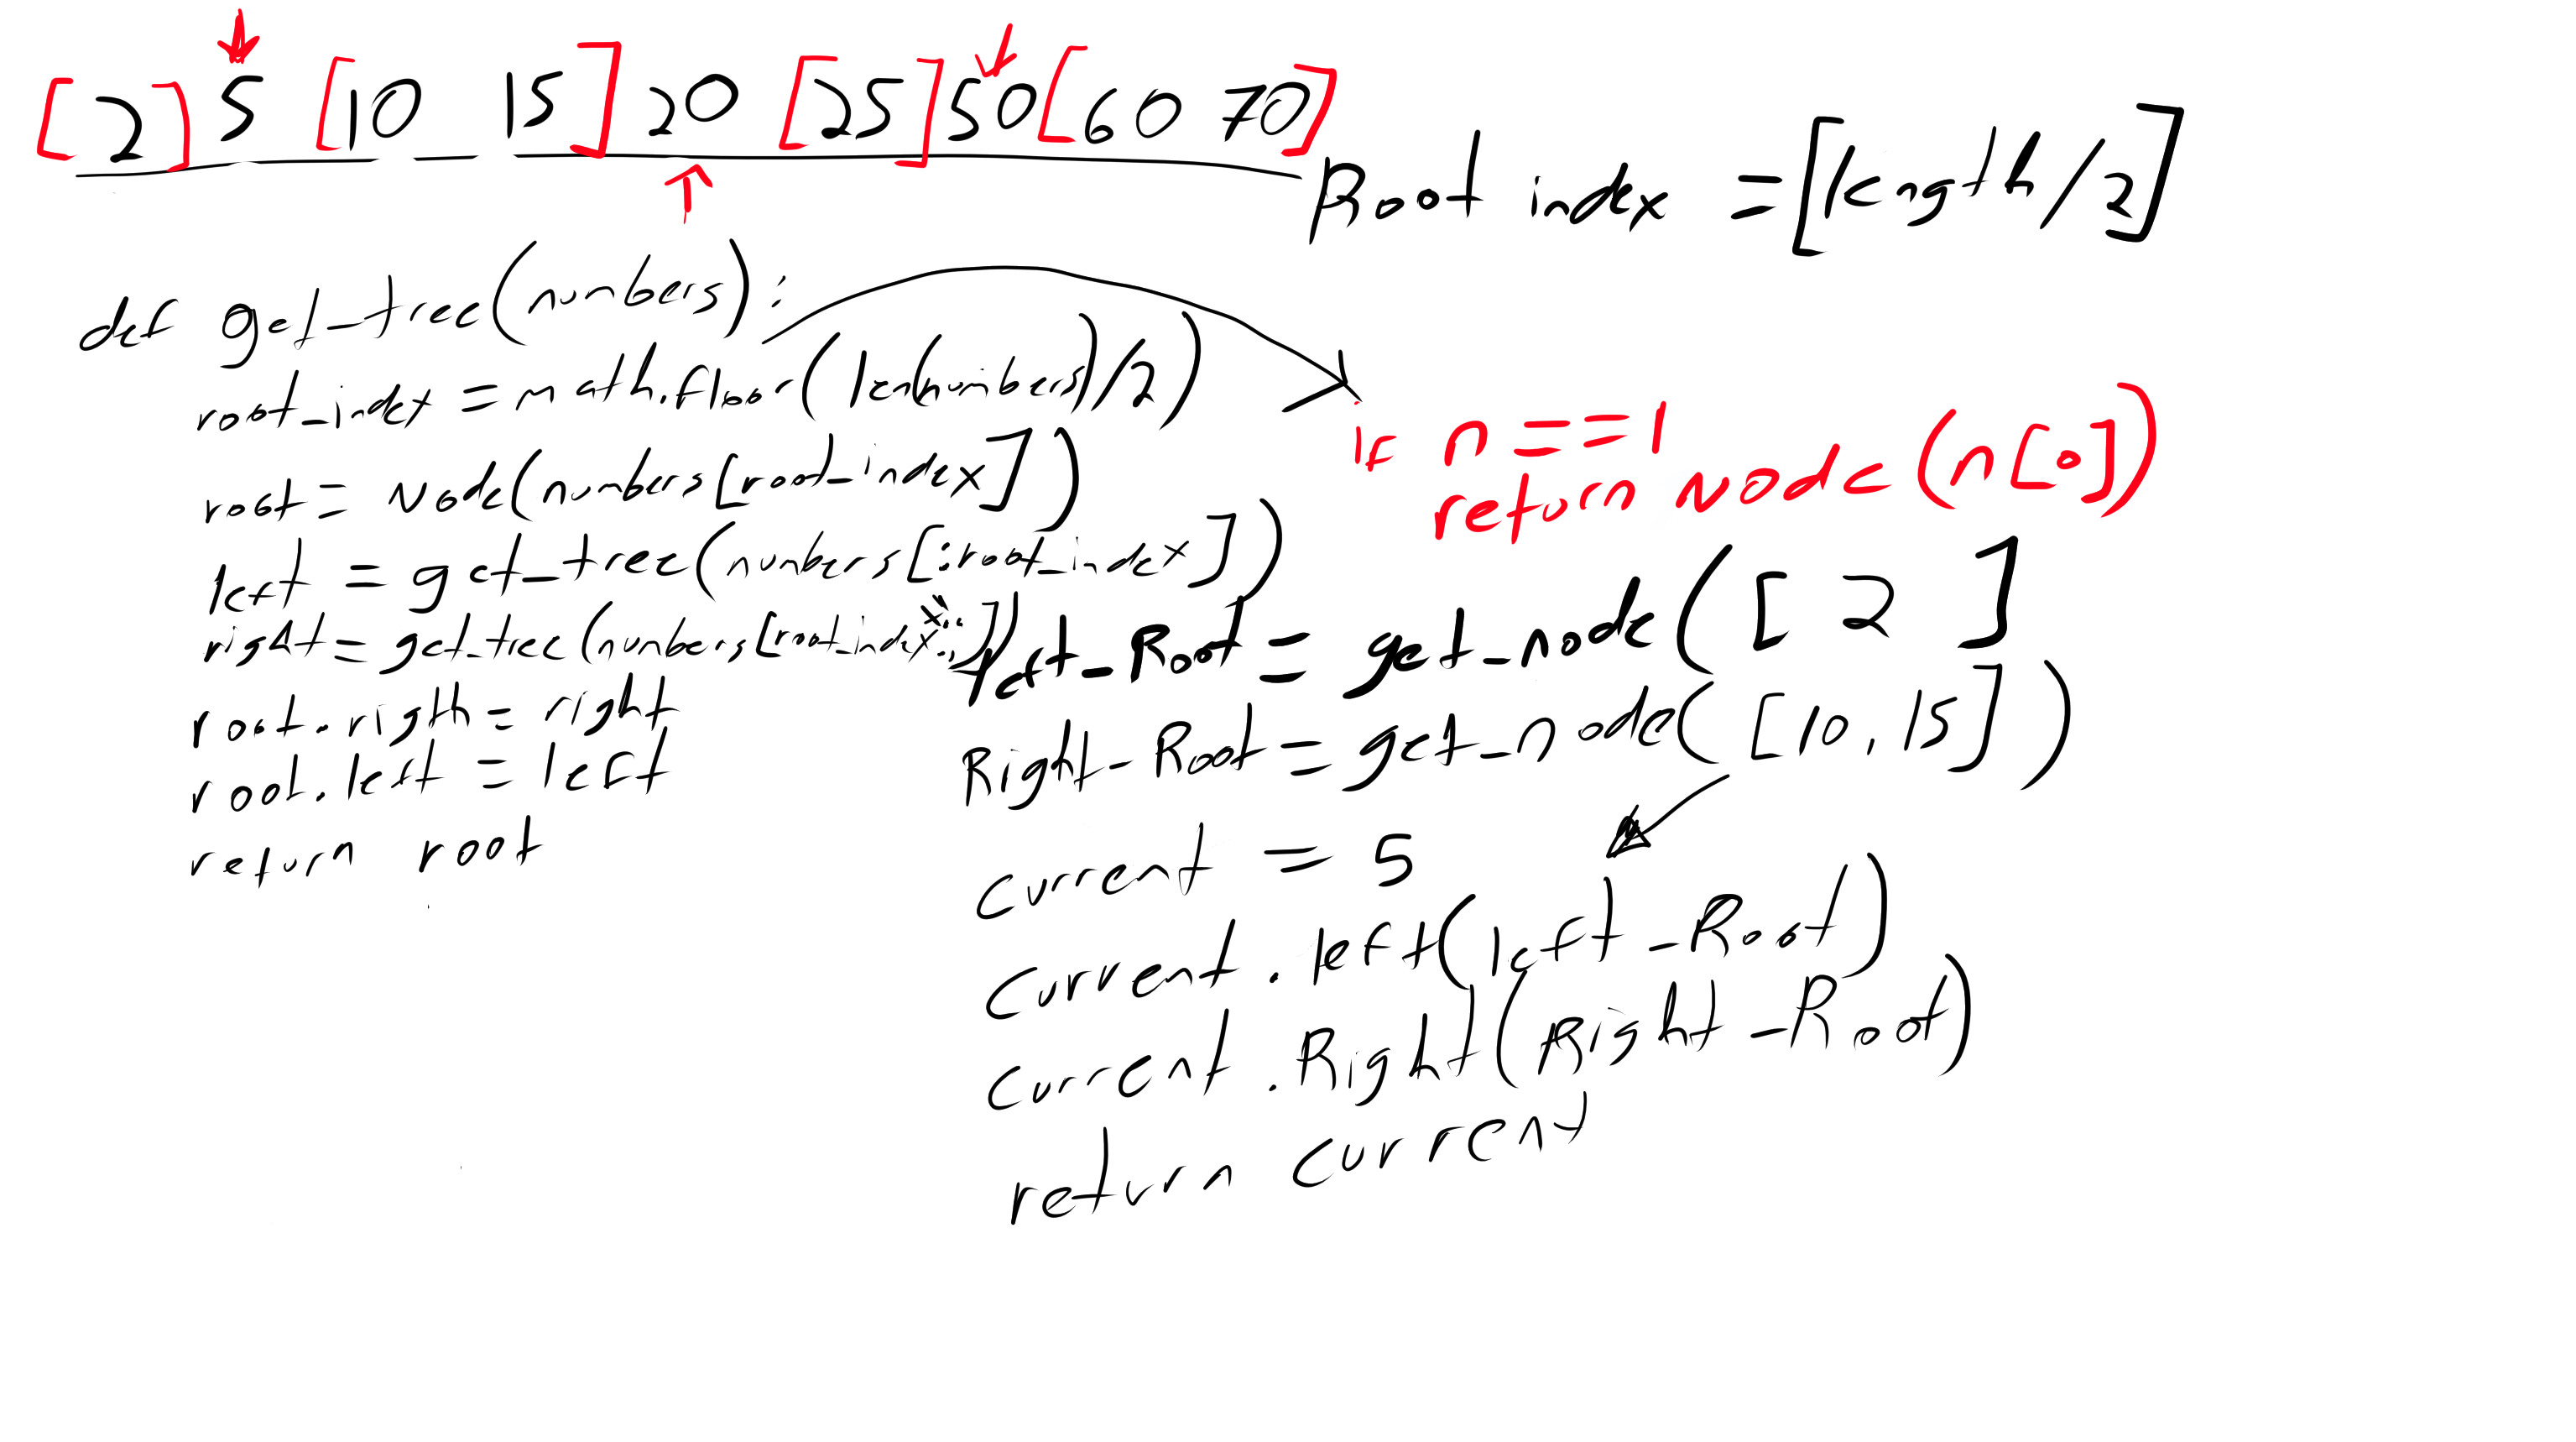 [2] 5 [10 15] 20 [25] 50 [60 70]
Root index = [length/2]
def get_tree(numbers):
root_index = math.floor(len(numbers)/2)
root = Node(numbers[root_index])
left = get_tree(numbers[:root_index])
right = get_tree(numbers[root_index
root.rigth = right
root.left = left
return root
if n == 1
return Node(n[0])
left_Root = get_node([2]
Right-Root = get_node([10, 15])
current = 5
current.left(left-Root)
current.Right(Right-Root)
return current